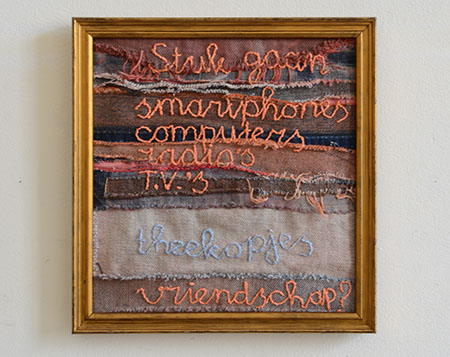 Stuk gaan
smartphones
computers
radio's
T.V.'s
theekopjes
vriendschap?